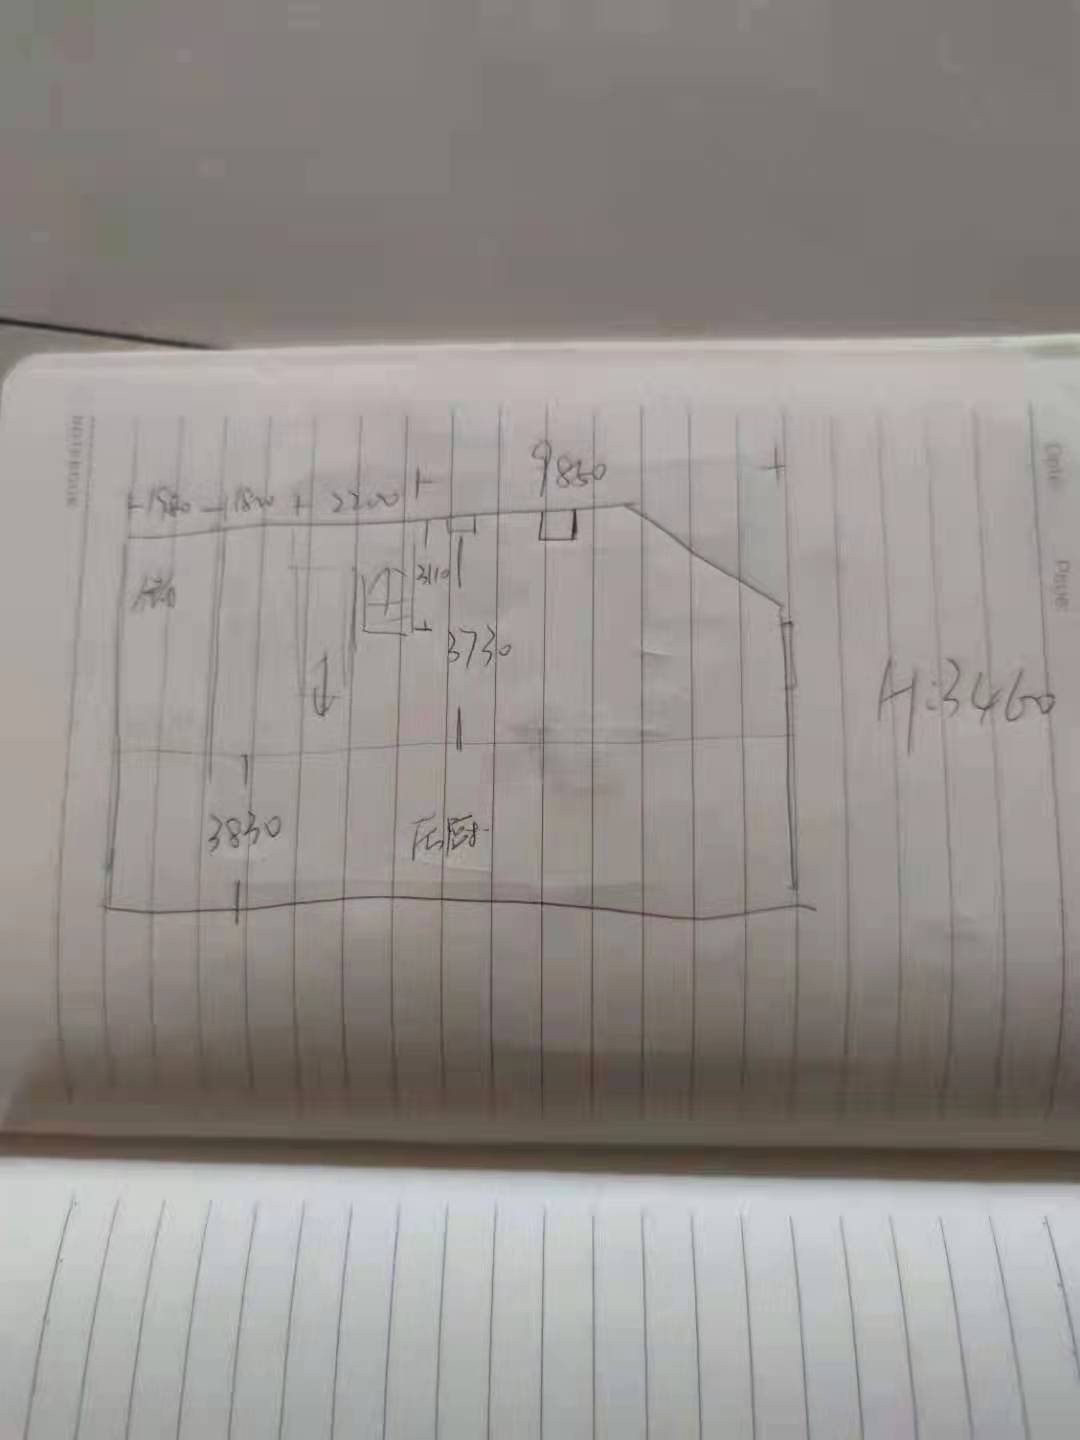 9850
1980
1800
2200
3110
3730
H:3460
3830
后厨
NOTEBOOK
Date
Page